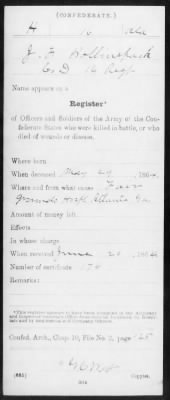 (CONFEDERATE.)
H 16 Ala
J. F. Hollinshack
Co D 16 Regt
Name appears on a
Register*
of Officers and Soldiers of the Army of the Con-
federate States who were killed in battle, or who
died of wounds or disease.
Where born
When deceased May 29, 1864
Where and from what cause Fair
Grounds Hosp. Atlanta Ga
Amount of money left
Effects
In whose charge
When received June 20, 1864
Number of certificate
Remarks:
*This register appears to have been compiled in the Adjutant
and Inspector General's Office from
Confed. Arch., Chap. 10, File No. 2, page
(685)
Copyist.